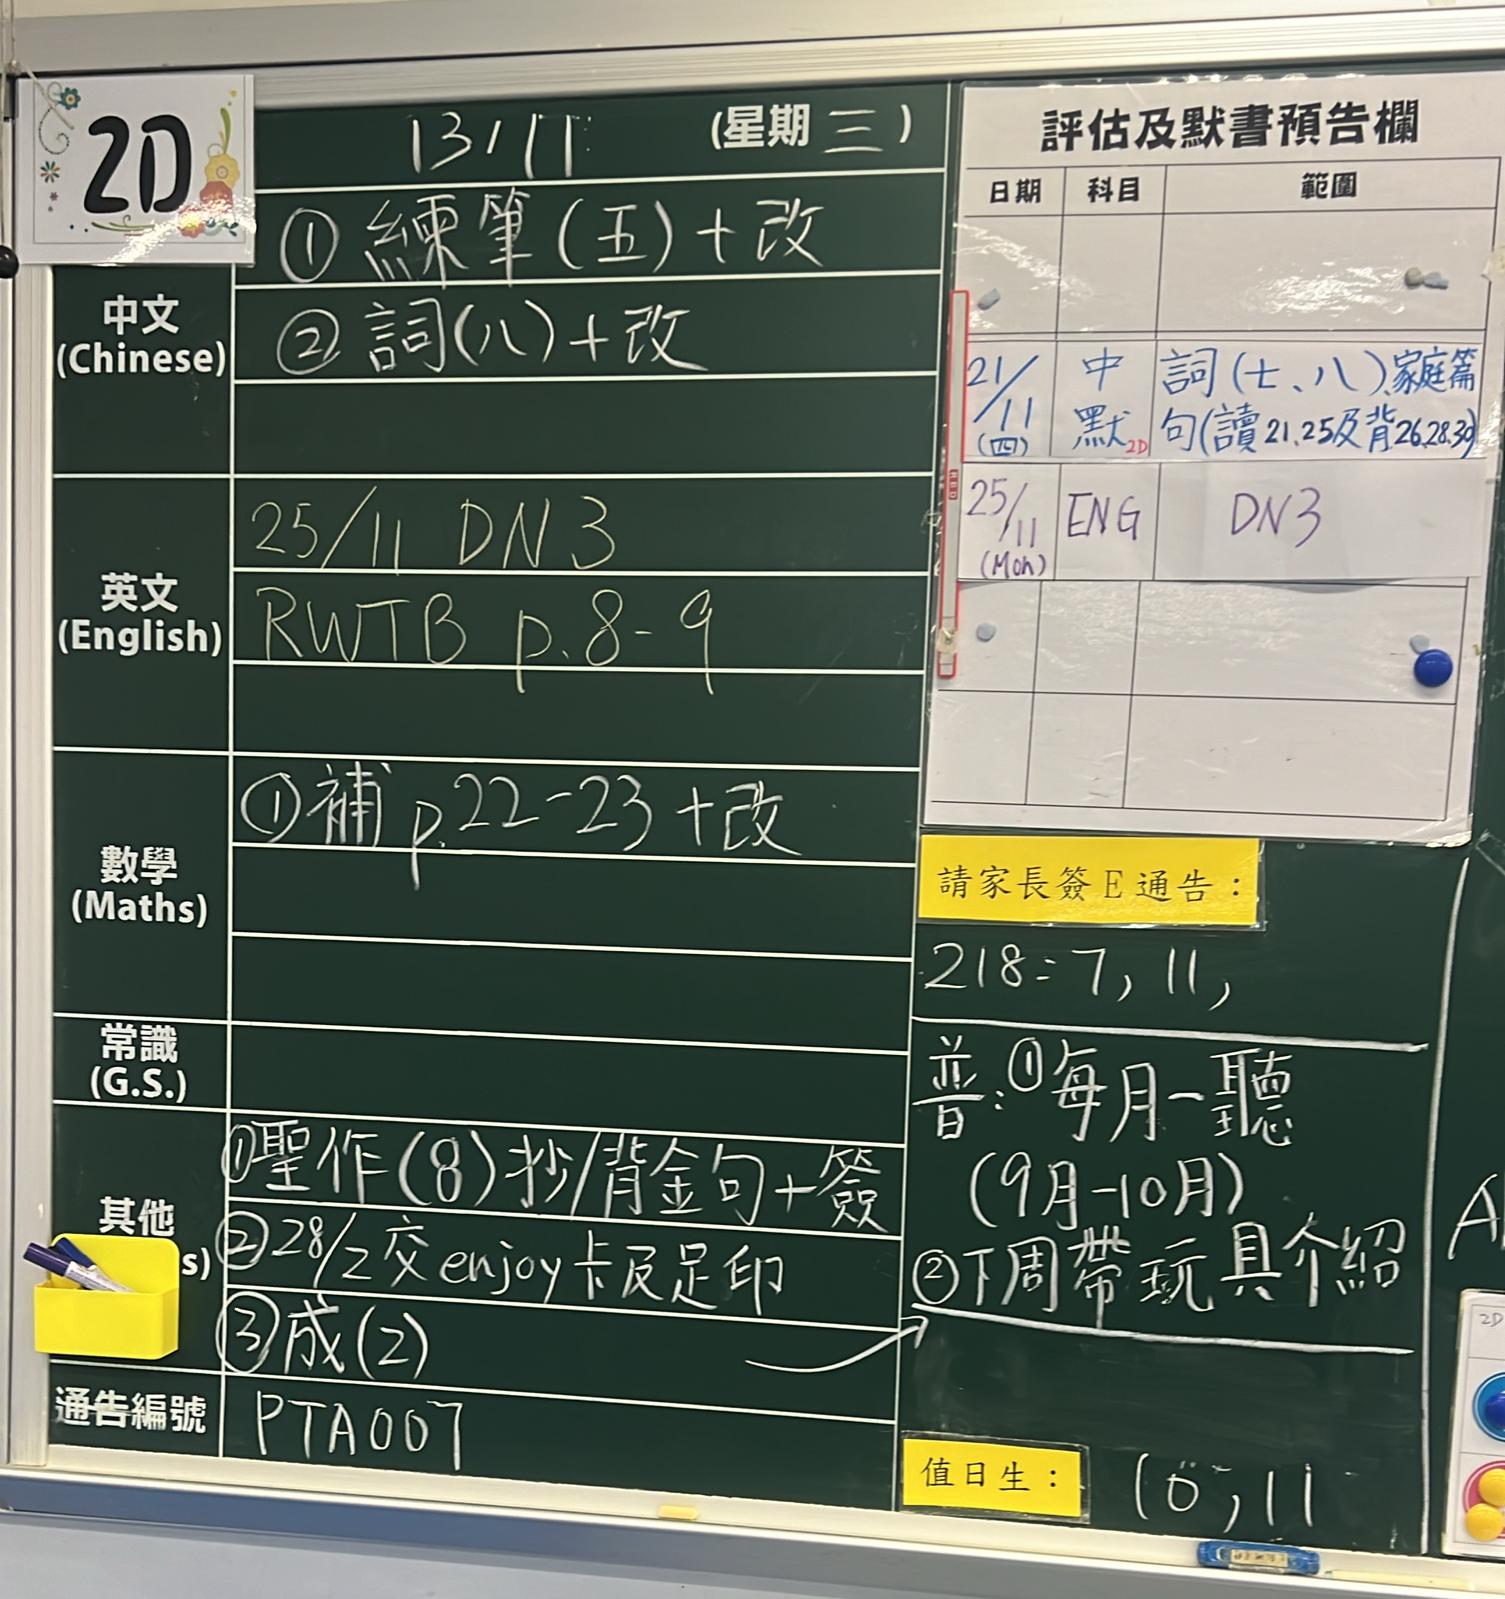 2D
13/11 (星期三)
中文
(Chinese)
① 練筆(五)+改
② 詞(八)+改
英文
(English)
25/11 DN 3
RWTB p.8-9
數學
(Maths)
① 補 p.22-23 +改
常識
(G.S.)
其他
s)
①聖作(8)抄/背金句+簽
②28/2交enjoy卡及足印
③成(2)
通告編號
PTA007
評估及默書預告欄
日期 科目 範圍
21/11(四) 中默2D 詞(七、八)、家庭篇
句(讀21.25及背26.28.30)
25/11(Mon) ENG DN3
請家長簽E通告:
218:7, 11,
普:①每月一聽
(9月-10月)
②下周帶玩具介紹
值日生:
10, 11
2D